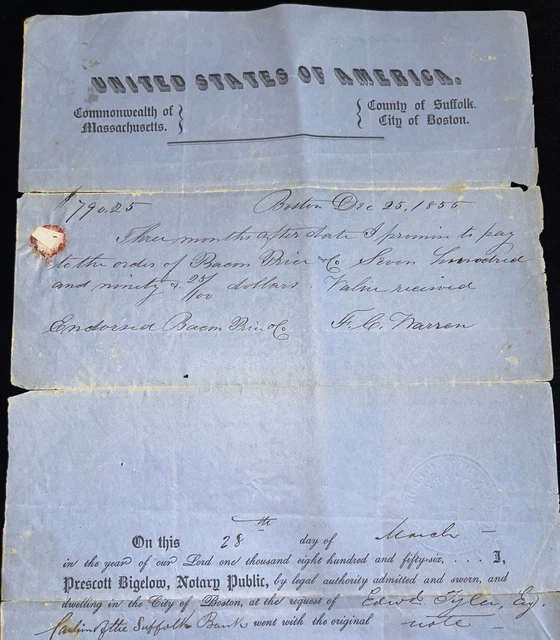 UNITED STATES OF AMERICA.
Commonwealth of Massachusetts.
County of Suffolk. City of Boston.
$790.25 Boston Dec 25, 1855
Three months after date I promise to pay
to the order of Bacon Price & Co Seven hundred
and ninety & 25/100 dollars Value received
Endorsed Bacon Price & Co F. C. Warren
On this 28th day of March
in the year of our Lord one thousand eight hundred and fifty-six, . . . . I,
Prescott Bigelow, Notary Public, by legal authority admitted and sworn, and
dwelling in the City of Boston, at the request of Edwd Tyler, Esq.
Cashier of the Suffolk Bank went with the original note